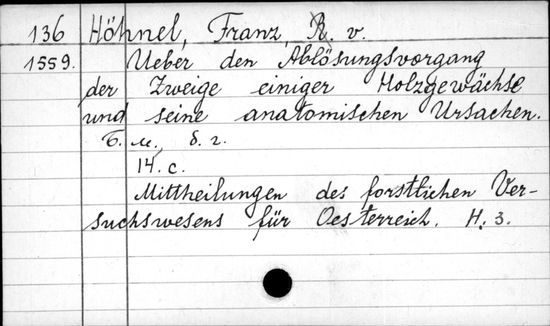 136 Höhnel, Franz, R. v.
1559. Ueber den Ablösungsvorgang
der Zweige einiger Holzgewächse
und seine anatomischen Ursachen.
б. м., б. г.
14. c.
Mittheilungen des forstlichen Ver-
suchswesens für Oesterreich. H. 3.